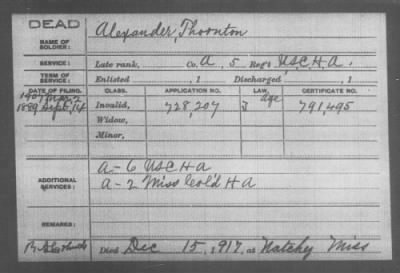 DEAD
NAME OF SOLDIER: Alexander, Thornton
SERVICE: Late rank, Co. A, 5 Reg't U.S.C.H.A.
TERM OF SERVICE: Enlisted , 1 Discharged , 1
DATE OF FILING. CLASS. APPLICATION NO. LAW. CERTIFICATE NO.
1907 Mar. 2 age
1889 Sept. 14 Invalid, 728,207 J 791,495
Widow,
Minor,
A-6 USCHA
ADDITIONAL SERVICES: A-2 Miss Col'd HA
REMARKS:
Died Dec 15, 1917, at Natchez Miss